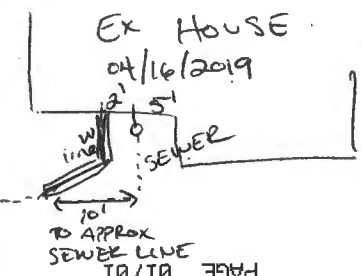 Ex HOUSE
04/16/2019
2' 5'
W line
SEWER
10'
TO APPROX
SEWER LINE
PAGE 01/01